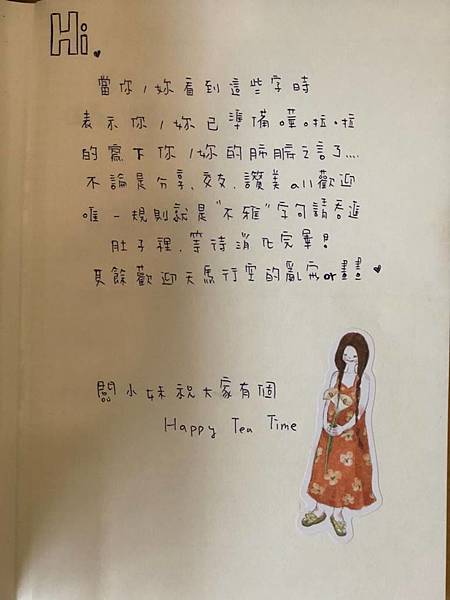 Hi
當你/妳看到這些字時
表示你/妳已準備噼.啪.啦
的寫下你/妳的肺腑之言了....
不論是分享、交友、讚美all歡迎
唯一規則就是"不雅"字句請吞進
肚子裡、等待消化完畢!
其餘歡迎天馬行空的亂寫or畫畫
闆小妹祝大家有個
Happy Tea Time